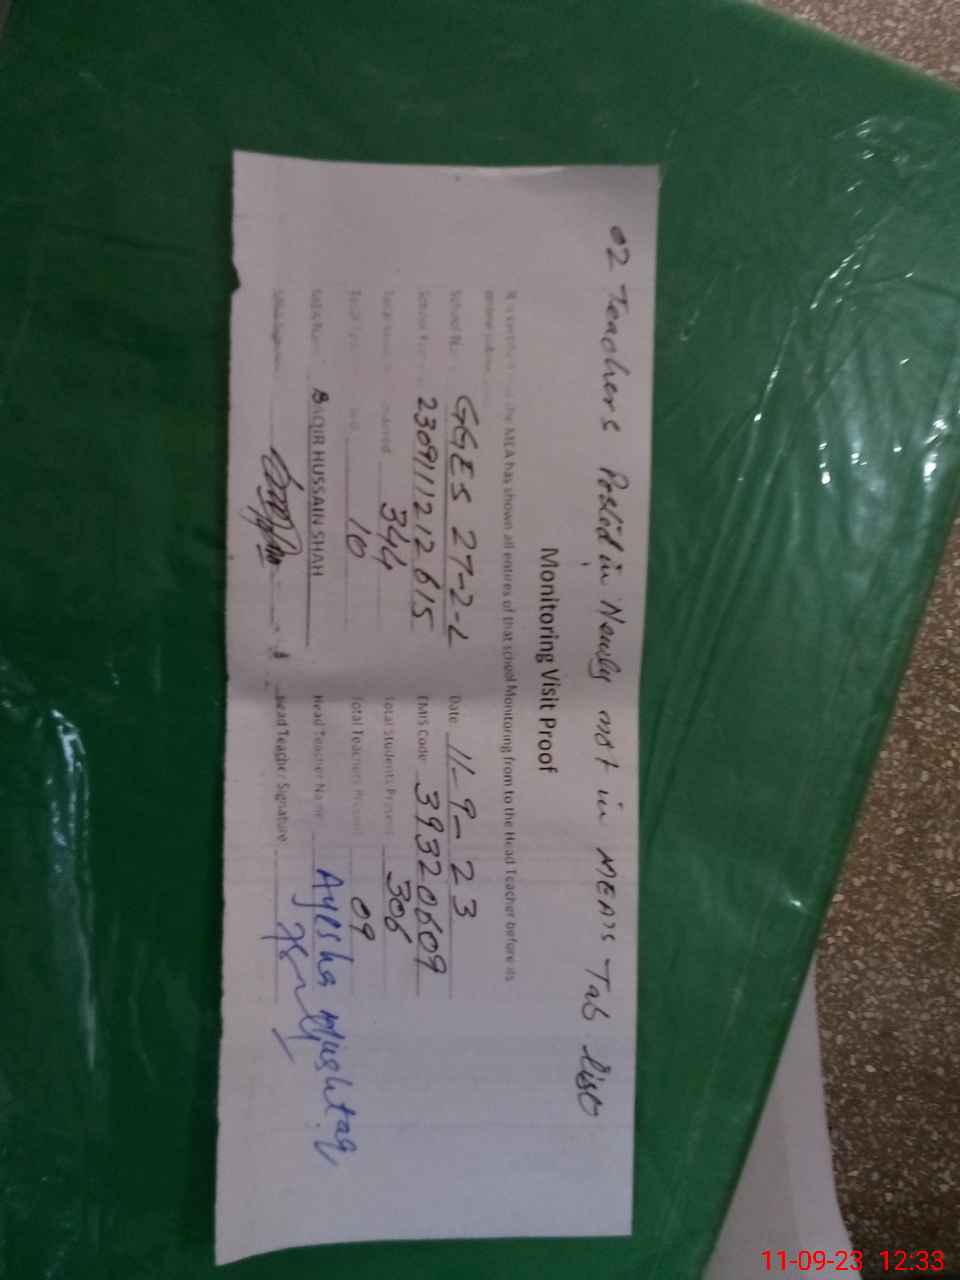 02 Teachers Posted in Newly not in MEA's Tab list
Monitoring Visit Proof
the MEA has shown all entires of that school Monitoring from to the Head Teacher before its
School GGES 27-2-L Date 11-9-23
School 2309111212615 EMIS Code 39320609
344 Total Students Present 306
10 Total Teachers Present 09
MEA Name BAQIR HUSSAIN SHAH Head Teacher Name Ayesha Mushtaq
Head Teacher Signature
11-09-23 12:33